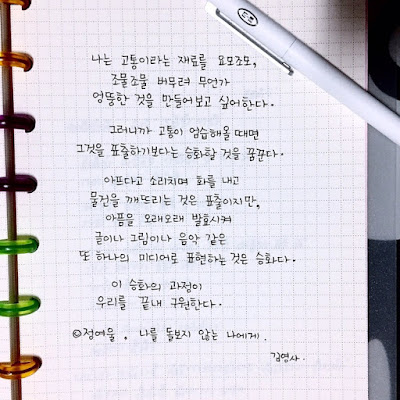 나는 고통이라는 재료를 요모조모,
조물조물 버무려 무언가
엉뚱한 것을 만들어보고 싶어한다.
그러니까 고통이 엄습해올 때면
그것을 표출하기보다는 승화할 것을 꿈꾼다.
아프다고 소리치며 화를 내고
물건을 깨뜨리는 것은 표출이지만,
아픔을 오래오래 발효시켜
글이나 그림이나 음악 같은
또 하나의 미디어로 표현하는 것은 승화다.
이 승화의 과정이
우리를 끝내 구원한다.
©정여울 . 나를 돌보지 않는 나에게.
김영사.